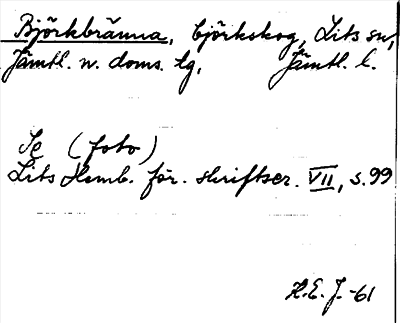 Björkbränna, björkskog, Lits sn,
Jämtl. n. doms. tg, Jämtl. l.
Se (foto)
Lits Hemb. för. skriftser. VII, s. 99
H.E.J. -61